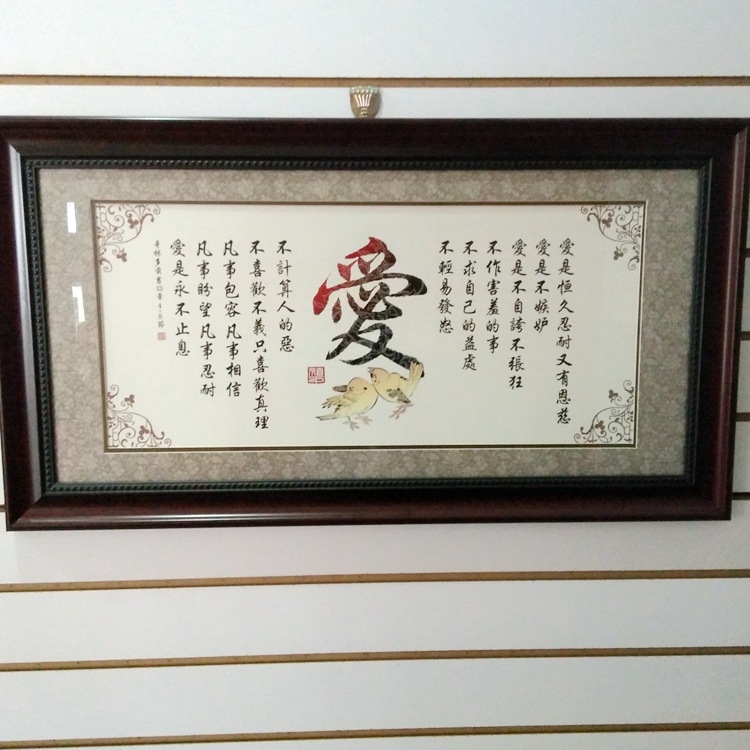 愛是恒久忍耐又有恩慈
愛是不嫉妒
愛是不自誇不張狂
不作害羞的事
不求自己的益處
不輕易發怒
愛
不計算人的惡
不喜歡不義只喜歡真理
凡事包容凡事相信
凡事盼望凡事忍耐
愛是永不止息
哥林多前書13章4-8節